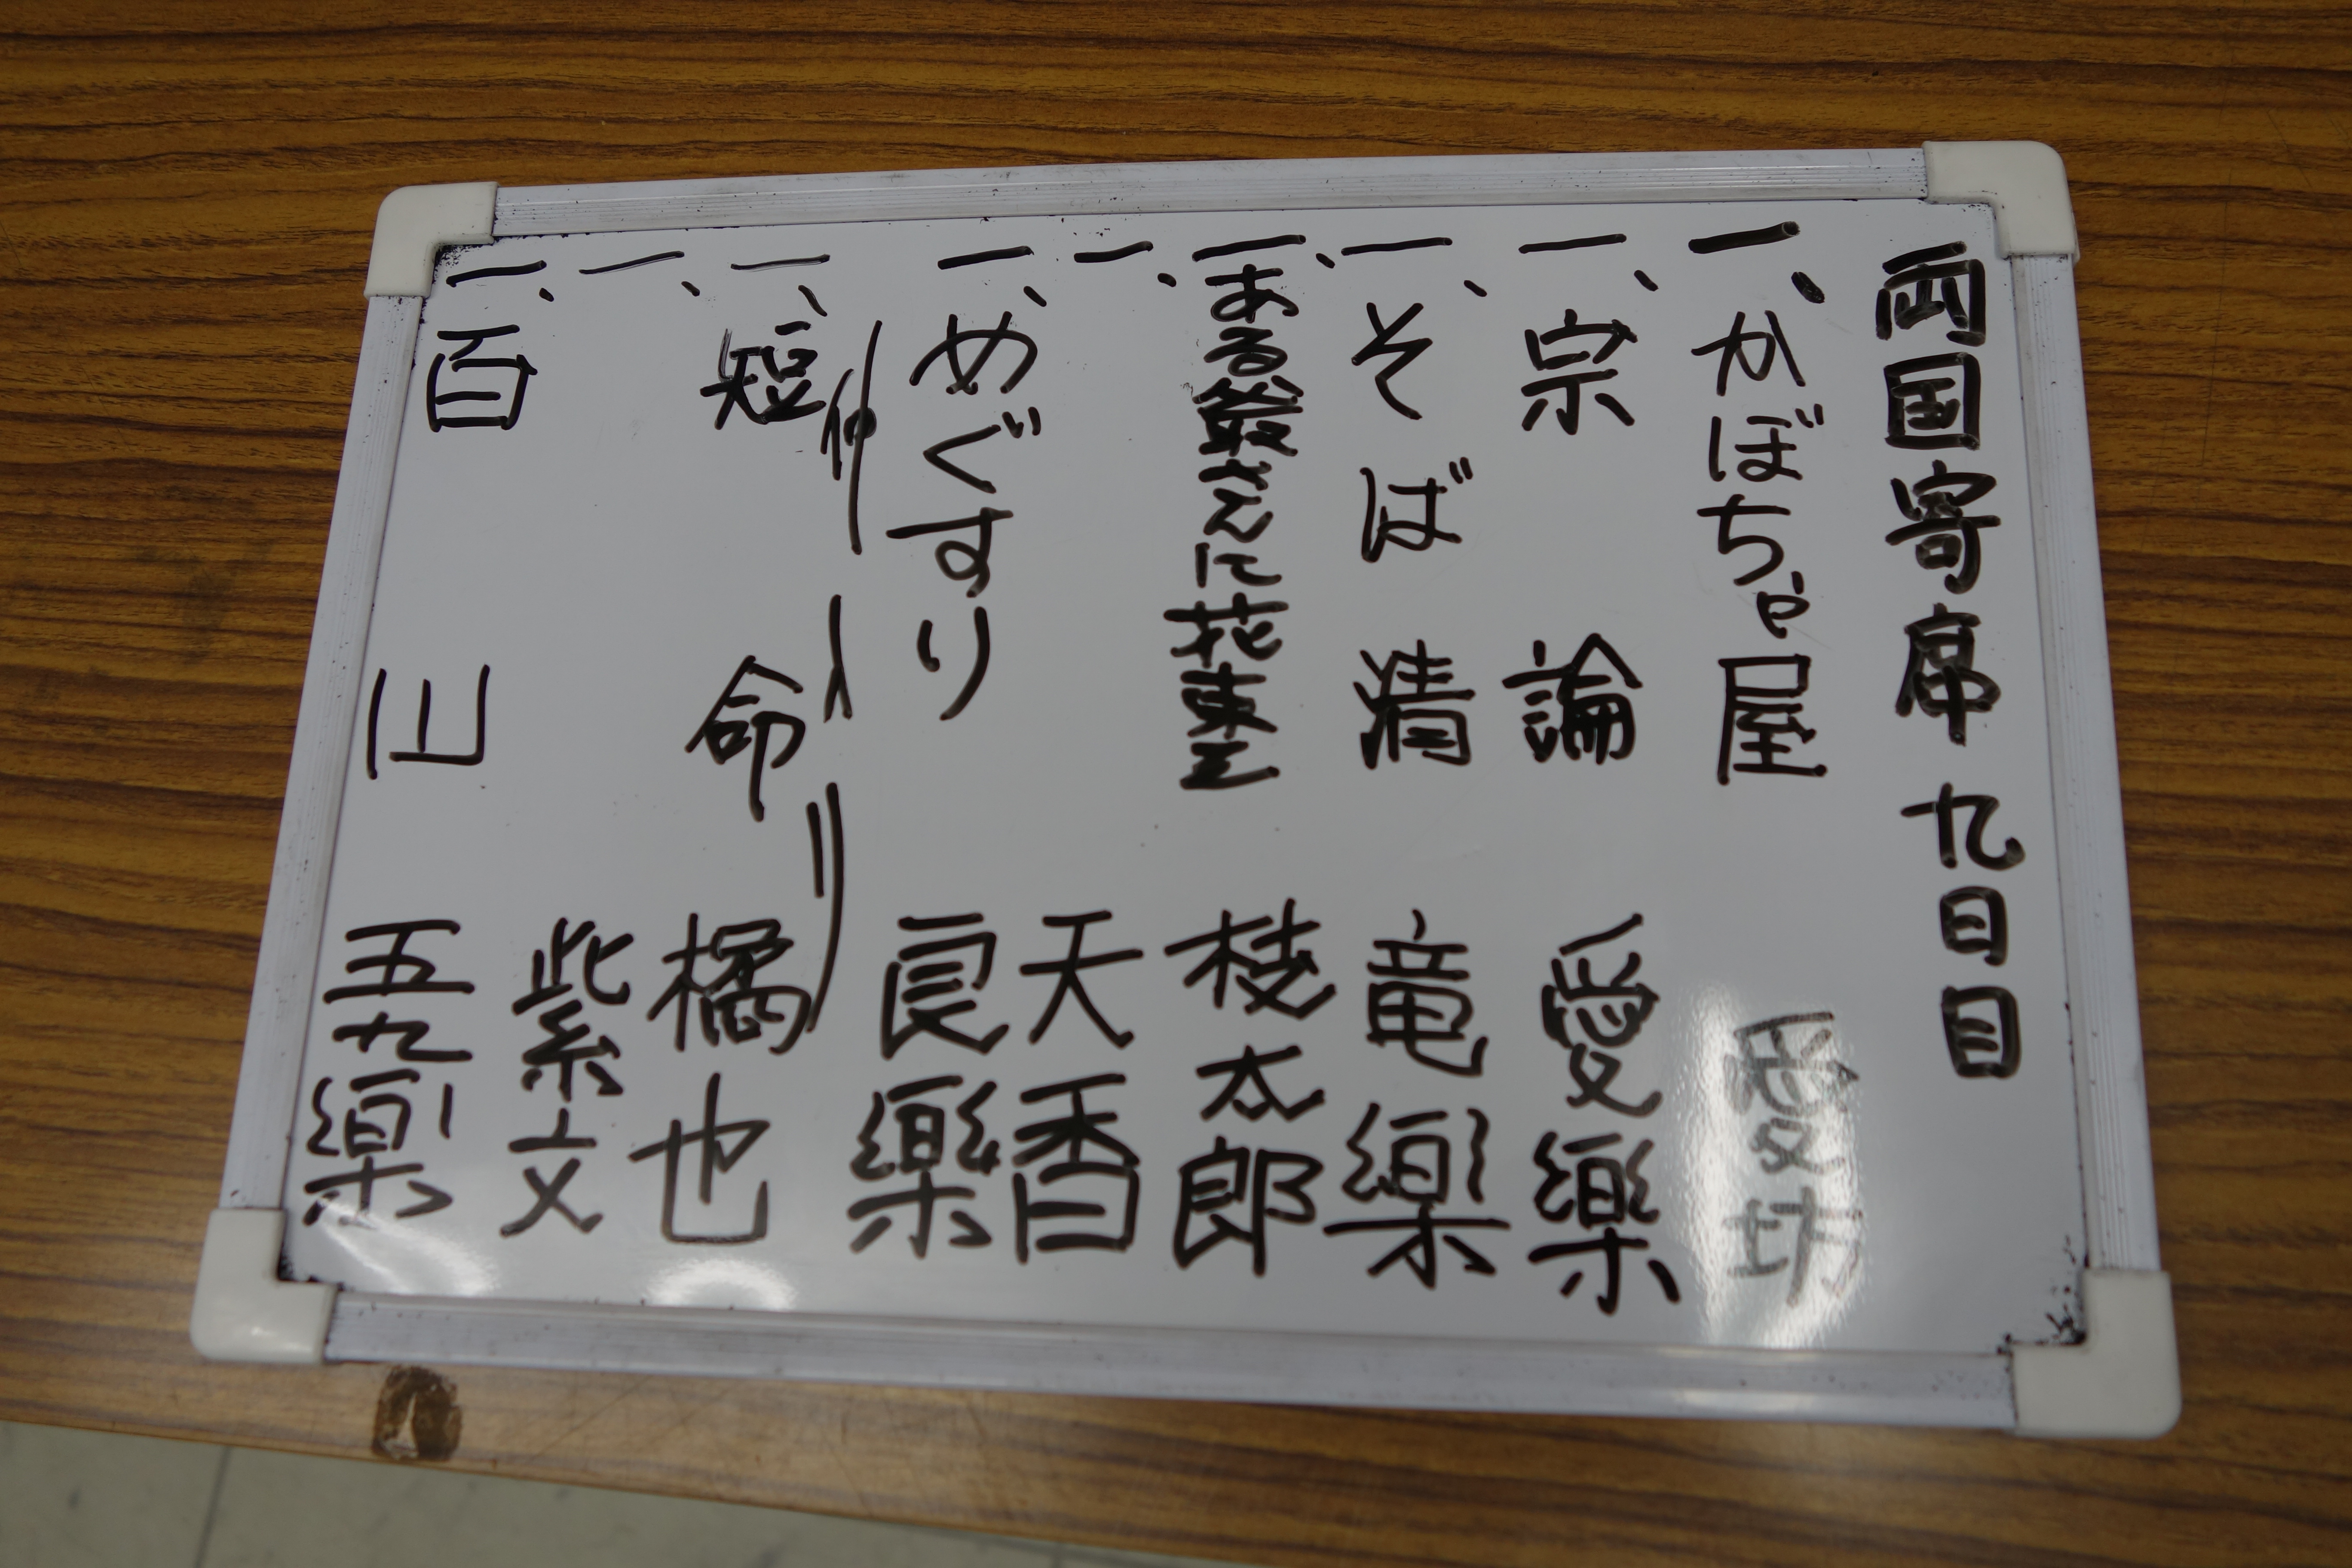 両国寄席 九日目
一、かぼちゃ屋 愛坊
一、宗論 愛樂
一、そば清 竜樂
一、ある爺さんに花束を 枝太郎
一、天香
一、めぐすり 良樂
仲入り
一、短命 橘也
一、紫文
一、百川 五九樂